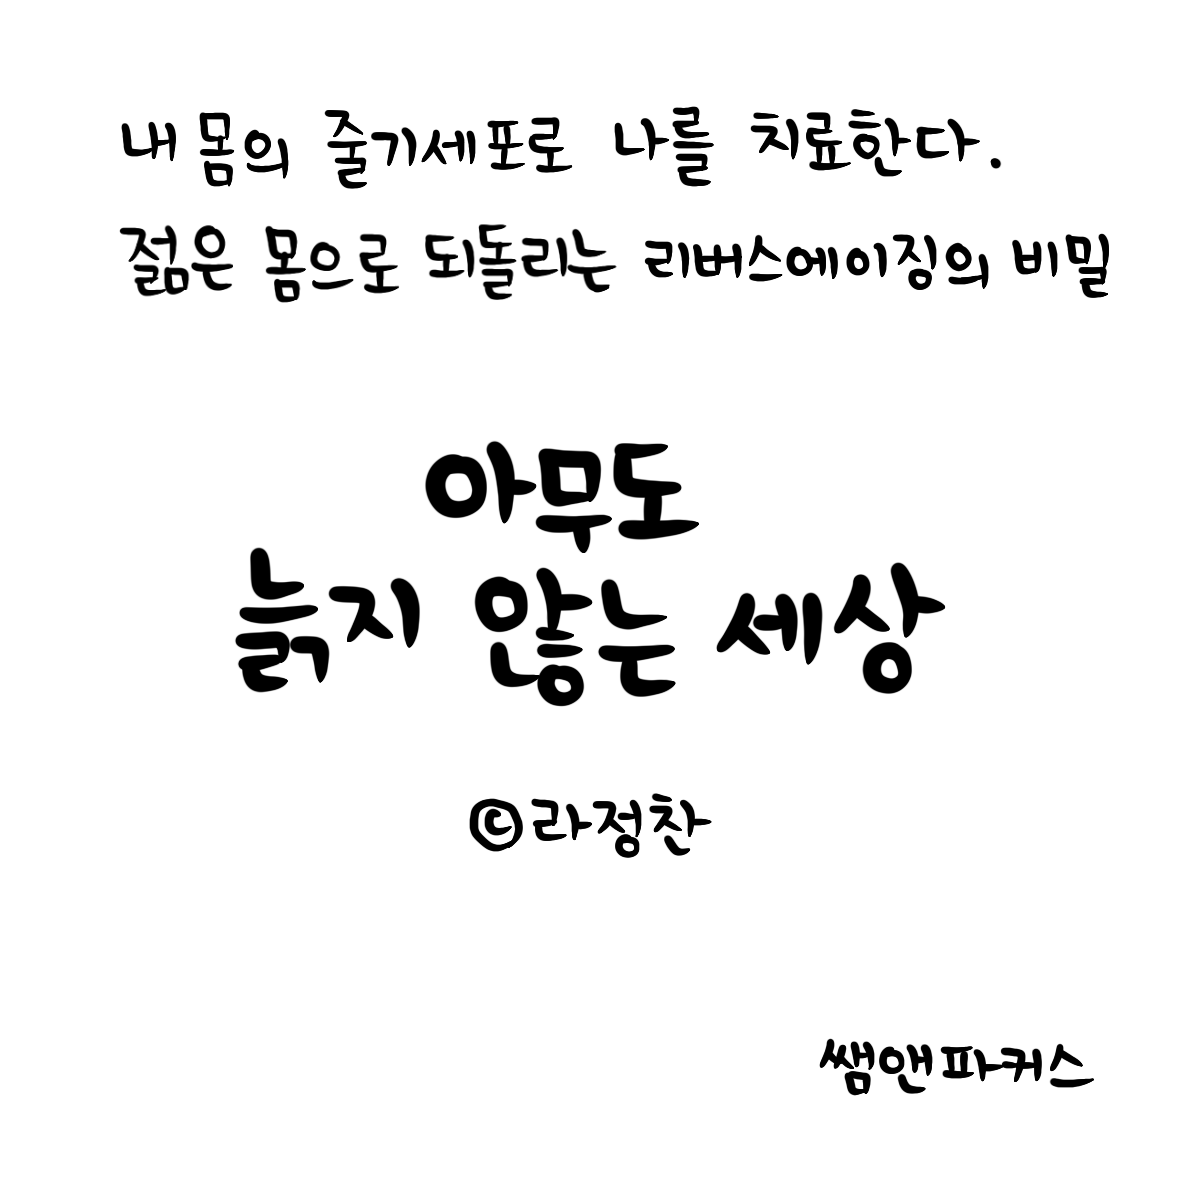 내 몸의 줄기세포로 나를 치료한다.
젊은 몸으로 되돌리는 리버스에이징의 비밀
아무도
늙지 않는 세상
©라정찬
쌤앤파커스